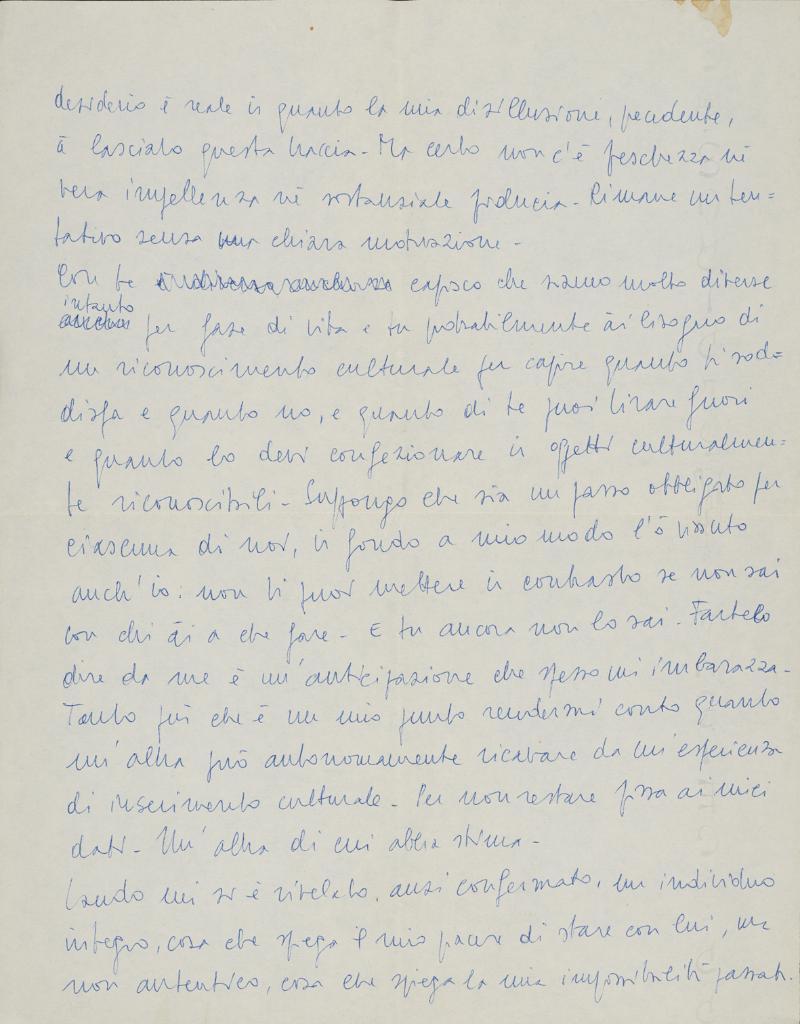 desiderio è reale in quanto la mia disillusione, precedente,
à lasciato questa traccia. Ma certo non c'è freschezza nè
vera impellenza nè sostanziale fiducia. Rimane un ten=
tativo senza una chiara motivazione.
Con te capisco che siamo molto diverse
intanto
per fase di vita e tu probabilmente ài bisogno di
un riconoscimento culturale per capire quanto ti sod=
disfa e quanto no, e quanto di te puoi tirare fuori
e quanto lo devi confezionare in oggetti culturalmen=
te riconoscibili. Suppongo che sia un passo obbligato per
ciascuna di noi, in fondo a mio modo l'ò vissuto
anch'io: non ti puoi mettere in contrasto se non sai
con chi ài a che fare. E tu ancora non lo sai. Fartelo
dire da me è un'anticipazione che spesso mi imbarazza.
Tanto più che è un mio punto rendermi conto quanto
un'altra può autonomamente ricavare da un'esperienza
di inserimento culturale. Per non restare fissa ai miei
dati. Un'altra di cui abbia stima.
mi si è rivelato, anzi confermato, un individuo
integro, cosa che spiega il mio piacere di stare con lui, ma
non autentico, cosa che spiega la mia impossibilità passata.